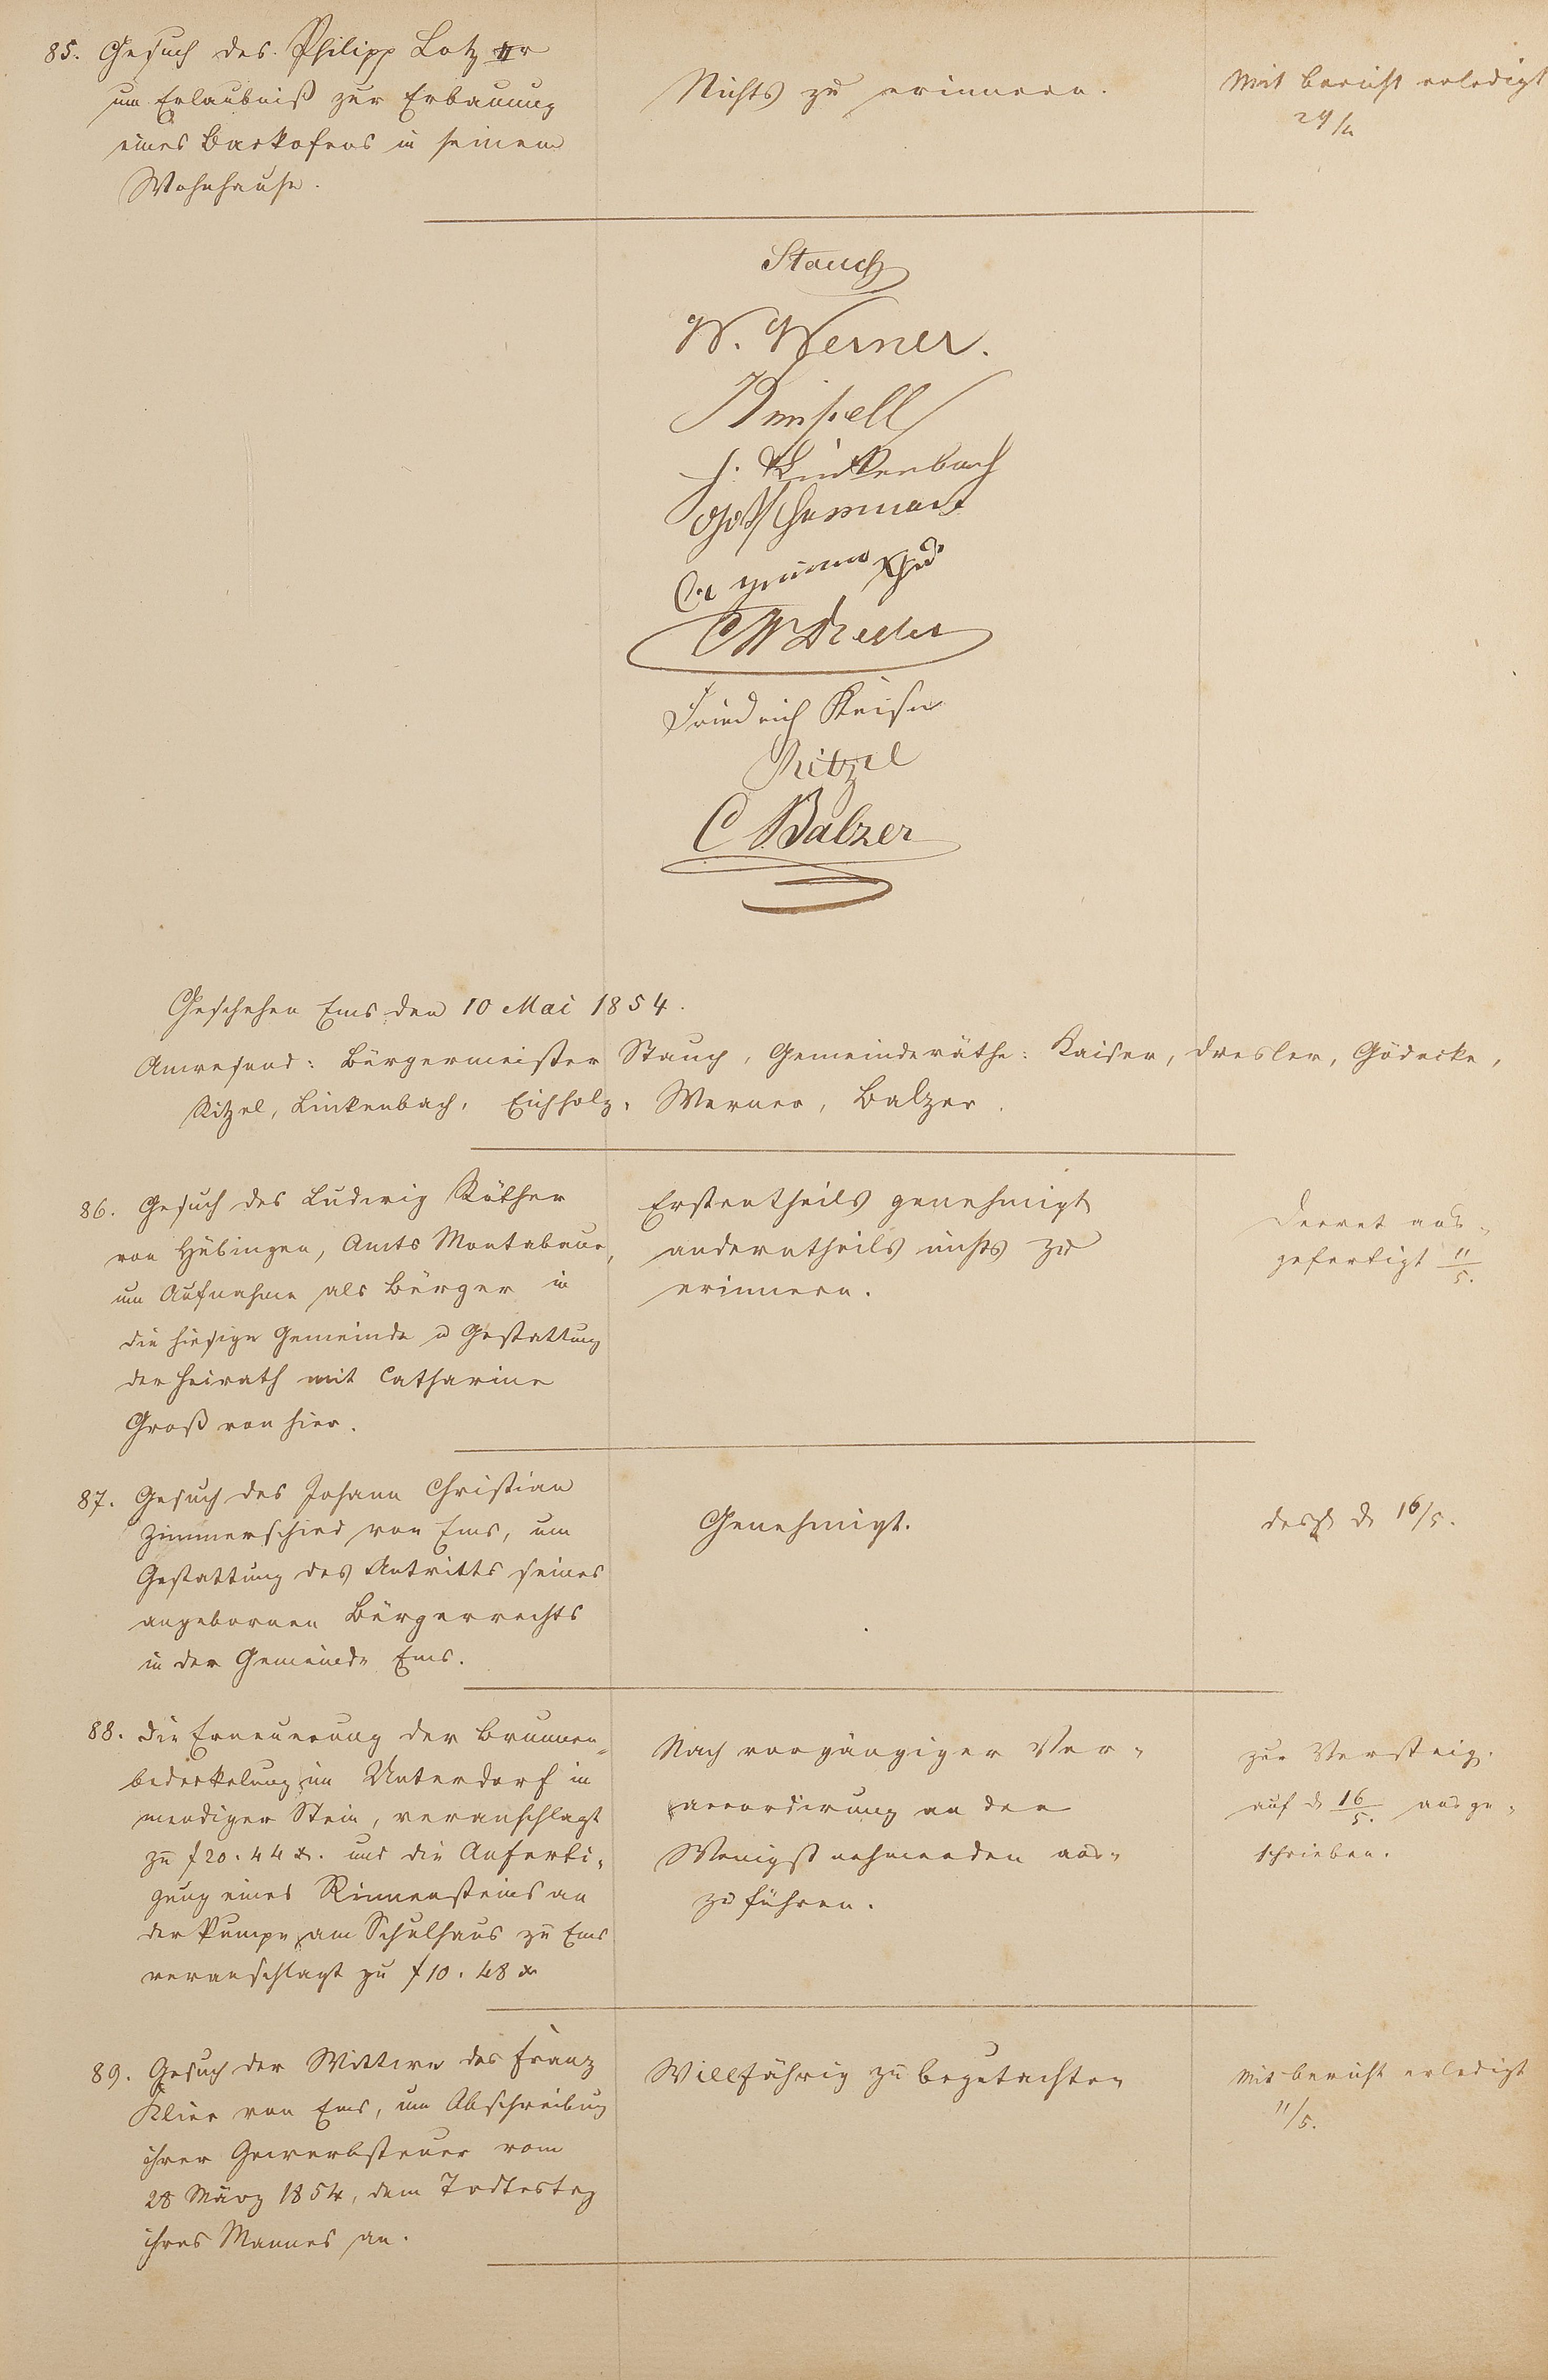 85. Gesuch des Philipp Lotz IIr
um Erlaubniß zur Erbauung
eines Backofens in seinem
Wohnhause.
Nichts zu erinnern.
Mit Bericht erledigt
29/4
Stauch
W. Werner.
Linkenbach
CW Dresler
Friedrich Keiser
Ritzel
C Balzer
Geschehen Ems den 10 Mai 1854.
Anwesend: Bürgermeister Stauch, Gemeinderäthe: Kaiser, Dresler, Gödecke,
Ritzel, Linkenbach, Eichholz, Werner, Balzer.
86. Gesuch des Ludwig Röther
von Hübingen, Amts Montabaur,
um Aufnahme als Bürger in
die hiesige Gemeinde u Gestattung
der Heirath mit Catharine
Groß von hier.
Erstentheils genehmigt
anderntheils nichts zu
erinnern.
Decret aus-
gefertigt 11/5.
87. Gesuch des Johann Christian
Zimmerschied von Ems, um
Gestattung des Antritts seines
angebornen Bürgerrechts
in der Gemeinde Ems.
Genehmigt.
desgl. d. 16/5.
88. Die Erneuerung der Brunnen-
bedeckelung im Unterdorf in
mendiger Stein, veranschlagt
zu f 20. 44 x. und die Anferti-
gung eines Rinnensteins an
der Pumpe am Schulhaus zu Ems
veranschlagt zu f 10. 48 x
Nach vorgängiger Ver-
accordirung an den
Wenigstnehmenden aus-
zuführen.
Zur Versteig.
auf d. 16/5. ausge-
schrieben.
89. Gesuch der Wittwe des Franz
Klier von Ems, um Abschreibung
ihrer Gewerbsteuer vom
28 März 1854, dem Todtestag
ihres Mannes an.
Willfährig zu begutachten
Mit Bericht erledigt
11/5.